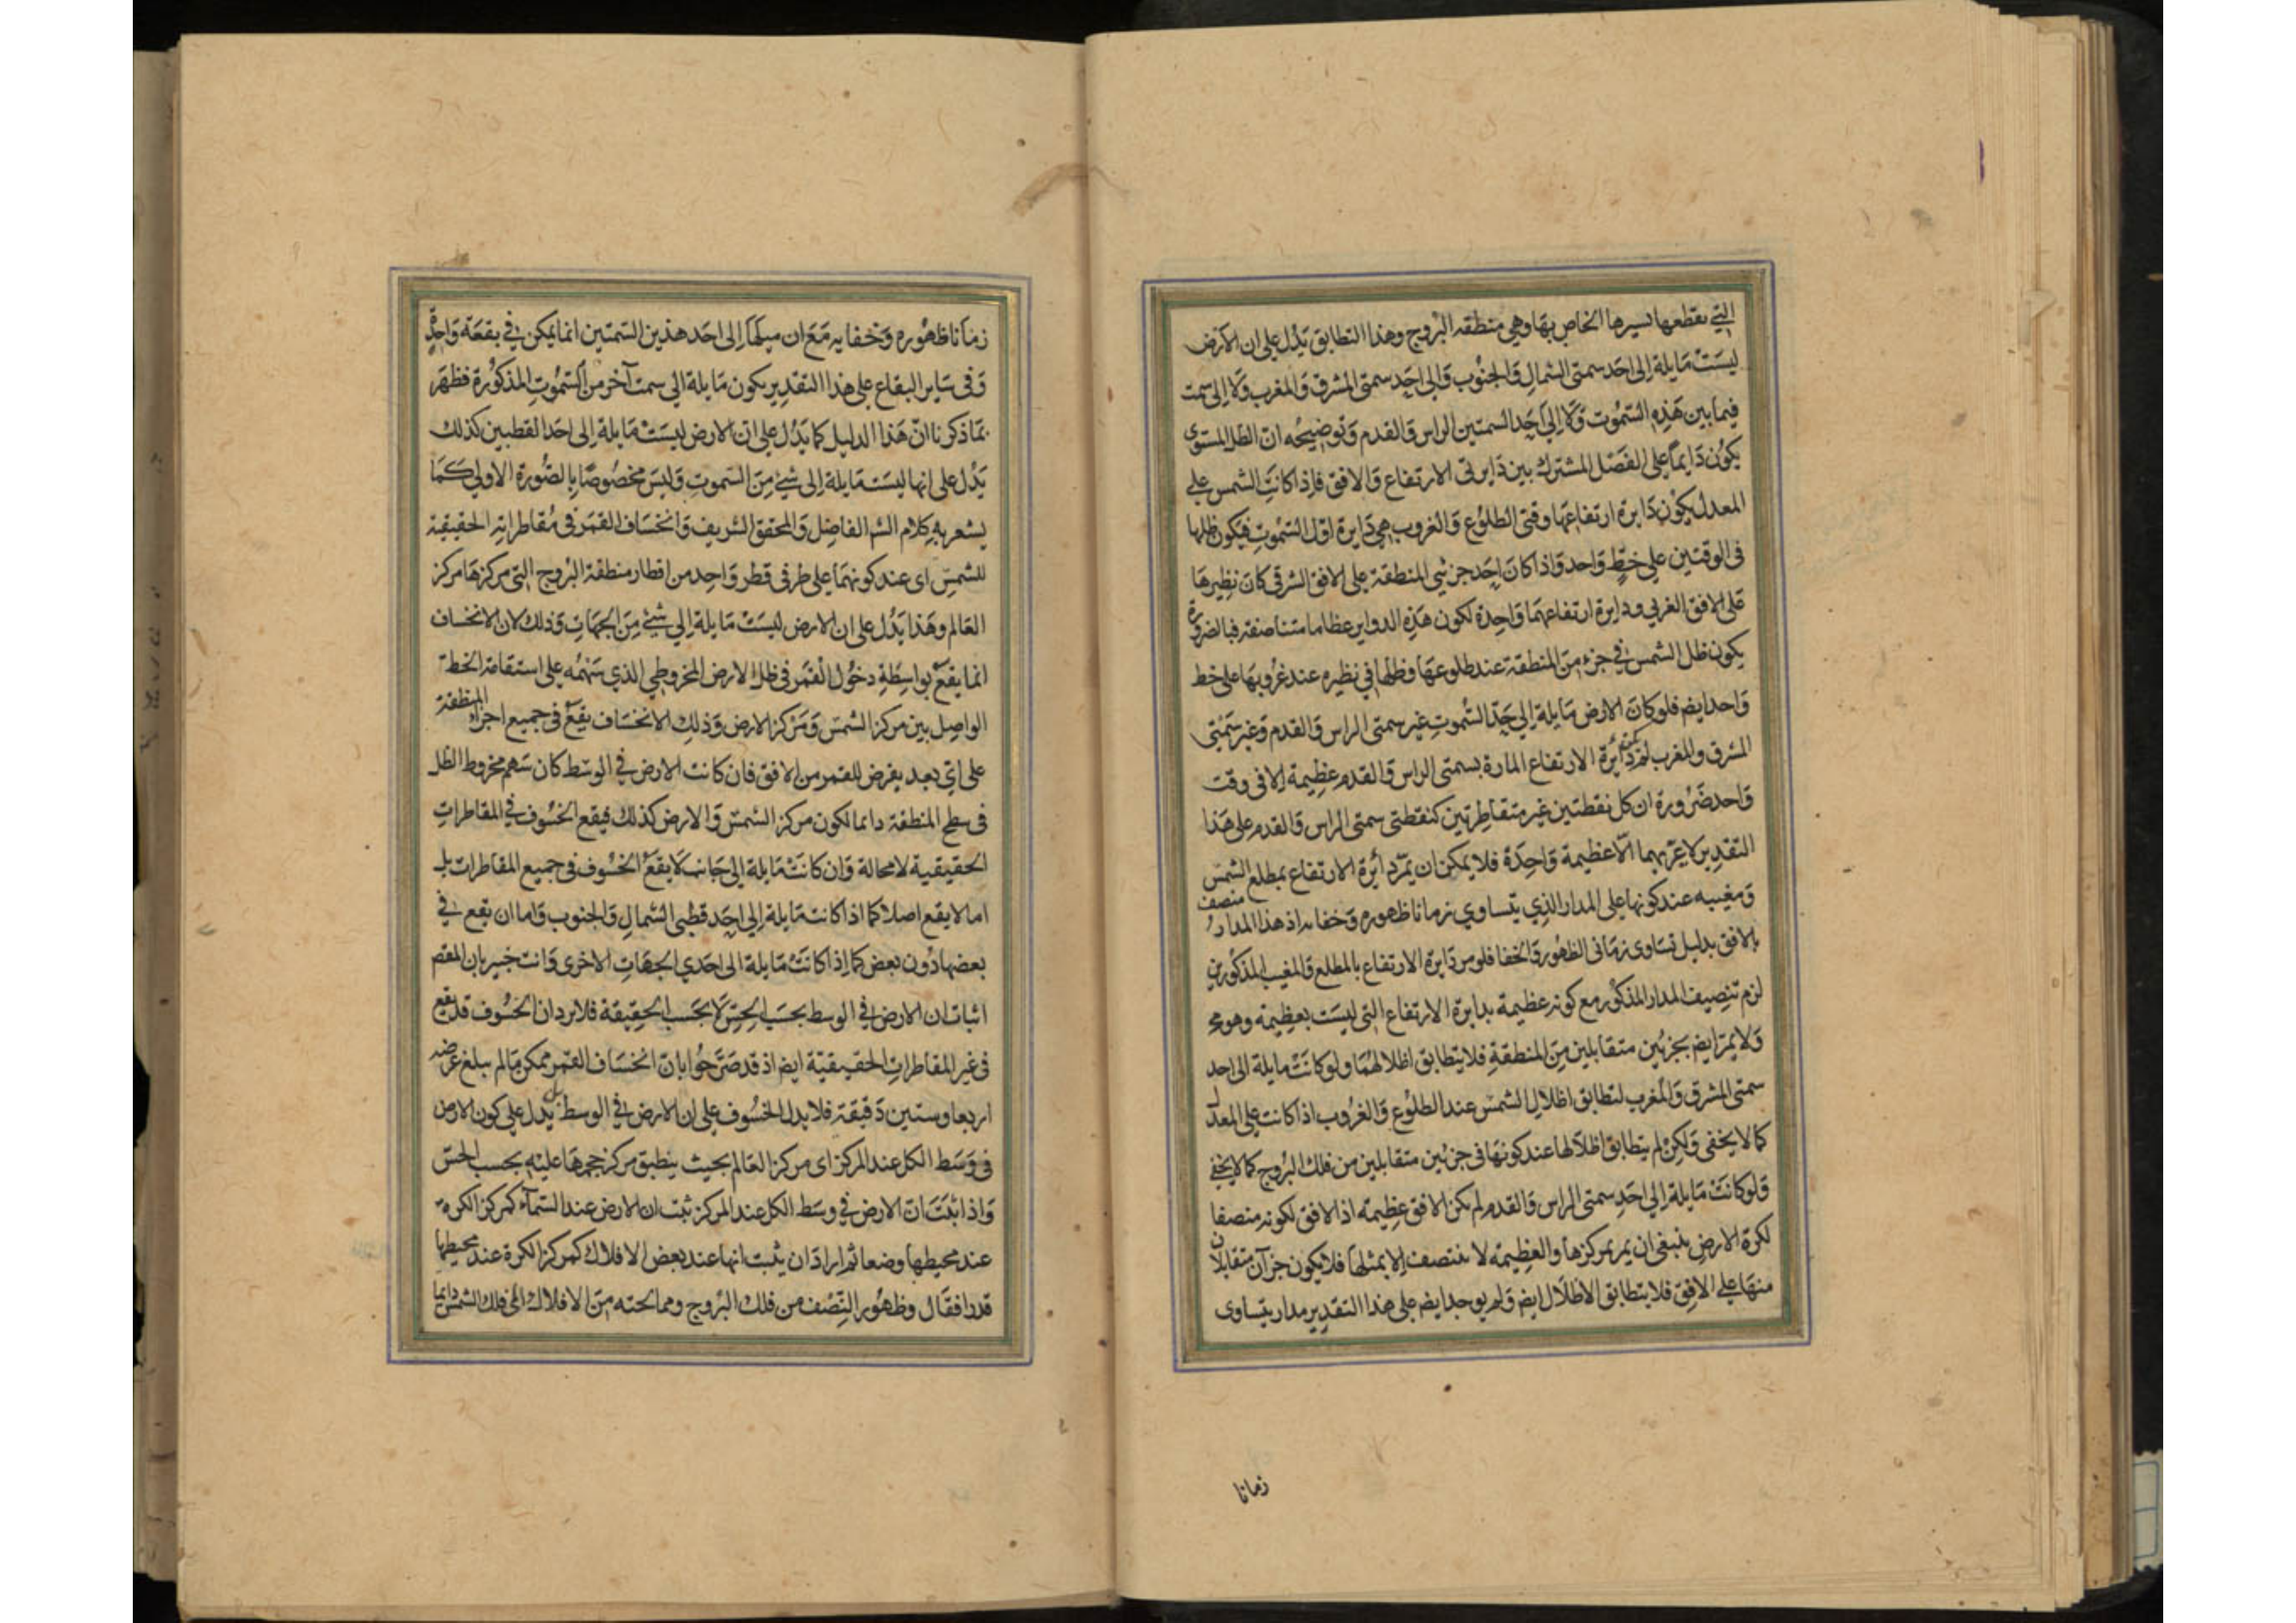 التي يقطعها بسيرها الخاص بها وهي منطقة البروج وهذا التطابق يَدُل على ان الارض
ليسَتْ مَايلة إلى احَد سمتى الشمالِ وَالجنُوب وَالى احَد سمتى المشرق وَالمغرب وَلا إلى سمت
فيما بين هَذِه السّمُوت وَلا إلى اَحَد السمتين الراس وَالقدم وَتوضيحُه انّ الظل المستوى
يكوُن دَايماً على الفصَل المشترك بين دَايرتى الارتفاع وَالافق فإذا كانَتِ الشمس على
المعدل يكوُن دَايرة ارتفاعهَا وقتى الطلوُع وَالغروب هِي دَايرة اوّل السّمُوتِ فيَكون ظلها
فى الوقتين على خطٍّ وَاحد وَاذا كانَ اَحَد جزئي المنطقة على الافق الشرقي كانَ نظيرهَا
عَلى الافق الغربي ودايرة ارتفاعهمَا وَاحِدة لكون هَذِه الدواير عظاما متناصفة فبالضرورة
يكون ظل الشمس في جزءٍ مِنَ المنطقة عند طلوعهَا وظلها في نظيره عند غرُوبهَا على خط
وَاحد ايضا فلو كانَ الارض مَايلة إلى حَدّ السّمُوتِ غير سمتى الراس وَالقدم وَغير سَمْتى
المشرق والمغرب لم يمكن دَائرة الارتفاع المارة بسمتى الراس وَالقدم عظِيمة إلا فى وقت
وَاحد ضَرُورة ان كل نقطتين غير متقاطرتين كنقطتى سمتى الراس وَالقدم على هَذا
التقدِير لا يمرّ بهما الّا عظيمة وَاحِدَة فلا يمكن ان يمرّ دَائرة الارتفاع بمطلع الشمسِ
وَمغيبه عند كونها على المدار الذِي يتسَاوي زمانا ظهوره وَخفايه اذ هذا المدار منصف
بالافق بدليل تسَاوى زمَانى الظهُور وَالخفا فلو مر دَايرة الارتفاع بالمطلع وَالمغيب المذكُورين
لزم تنصِيف المدار المذكوُر مع كونه عظيمة بدايرة الارتفاع التى ليسَت بعظِيمة وهو مح
وَلا يمرّ ايضا بجزئين متقابلين مِنَ المنطقةِ فلا يتطابق اظلالهُمَا ولو كانَتْ مايلة الى احد
سمتى المشرق وَالمغرب لتطابق اظلال الشمسِ عند الطلوُع وَالغرُوب اذا كانت على المعدل
كما لا يخفى وَلكِنْ لم يتطابق اظلالها عند كونهَا فى جزئين متقابلين من فلك البرُوج كما لا يخفي
وَلو كانَتْ مَايلة إلى احَدِ سمتى الراس وَالقدم لم يكن الافق عظِيمة اذ الافق لكونه منصفا
لكرة الارضِ ينبغى ان يمر بمركزها والعظِيمة لا تنتصف إلا بمثلها فلا يكون جزآن متقابلان
منهَا على الافق فلا يتطابق الاظلال ايضا وَلم يوجد ايضا على هَذا التقدِير مدار يتسَاوى
زمانا
زمَانا ظهُوره وَخفايه مَعَ ان ميلهَا إلى احَد هذين السّمتين انما يمكن في بقعَة وَاحِدَةٍ
وَفى سَاير البقاع على هَذا التقدِير يكون مَايلة الى سمت آخر مِنَ السّمُوتِ المذكوُرة فظهَر
بمَا ذكرنا انّ هَذا الدليل كما يَدُل على انّ الارض ليسَتْ مَايلة إلى احَد القطبين كذلك
يَدُل على انها ليسَت مَايلة إلى شيْءٍ مِنَ السّموتِ وَليسَ مخصُوصًا بالصُّورة الاولى كَمَا
يشعر به كلام الشر الفاضِل وَالمحقق الشريف وَانخسَاف القمَر فى مُقاطراته الحقيقية
للشمسِ اى عند كونهمَا على طرفى قطر وَاحِد من اقطار منطقة البرُوج التى مركزهَا مركز
العَالم وهَذا يَدُل على ان الارض ليسَتْ مَايلة إلى شيْءٍ مِنَ الجهَاتِ وَذلك لان الانخسَاف
انما يقعُ بواسِطَةِ دخُول القمَر فى ظل الارض المخروطي الذي سَهْمُه على استقامة الخط
الواصِل بين مركز الشمسَ وَمَركز الارض وَذلك الانخسَاف يقعُ فى جميع اجزاء المنطقة
على اىّ بعد يفرض للقمر من الافق فان كانت الارض في الوسَط كان سَهم مخروط الظل
فى سطح المنطقة دايما لكون مركز الشمسِ وَالارض كذلك فيقع الخسُوف في المقاطراتِ
الحقيقية لا محالة وَان كانَتْ مَايلة إلى جَانبٍ لا يقعُ الخسُوف فى جميع المقاطرات بل
اما لا يقع اصلا كما اذا كانت مَايلة إلى احَد قطبى الشمالِ وَالجنوب وَاما ان يقع في
بعضهَا دُون بعض كما إذا كانَتْ مَايلة الى احدَي الجهَاتِ الاخرى وَانت خبير بان المقصد
اثبات ان الارض في الوسط بحسَب الحِسِّ لَا بحَسب الحقِيقة فلا يرد ان الخسُوف قد يقع
فى غير المقاطراتِ الحقيقيّة ايضا اذ قد صَرّحوُا بانّ انخسَاف القمَر ممكن مَا لم يبلغ عرضه
اربعا وستين دَقيقة فلا يدل الخسُوف على ان الارض في الوسط بل يَدل على كون الارض
فى وَسَط الكل عند المركز اى مركز العَالم بحيث ينطبق مركز حجمهَا عليْه بحسب الحسّ
وَاذا ثبَتَ انّ الارض في وسَط الكل عند المركز ثبت ان الارض عند السّمآء كمركز الكره
عند محيطهَا وضعا ثم ارادَ ان يثبت انها عند بعض الافلاك كمركز الكرة عند محيطها
قدرا فقَال وظهُور النِّصْف من فلك البرُوج ومما تحته مِنَ الافلاك الى فلك الشمس دَايما